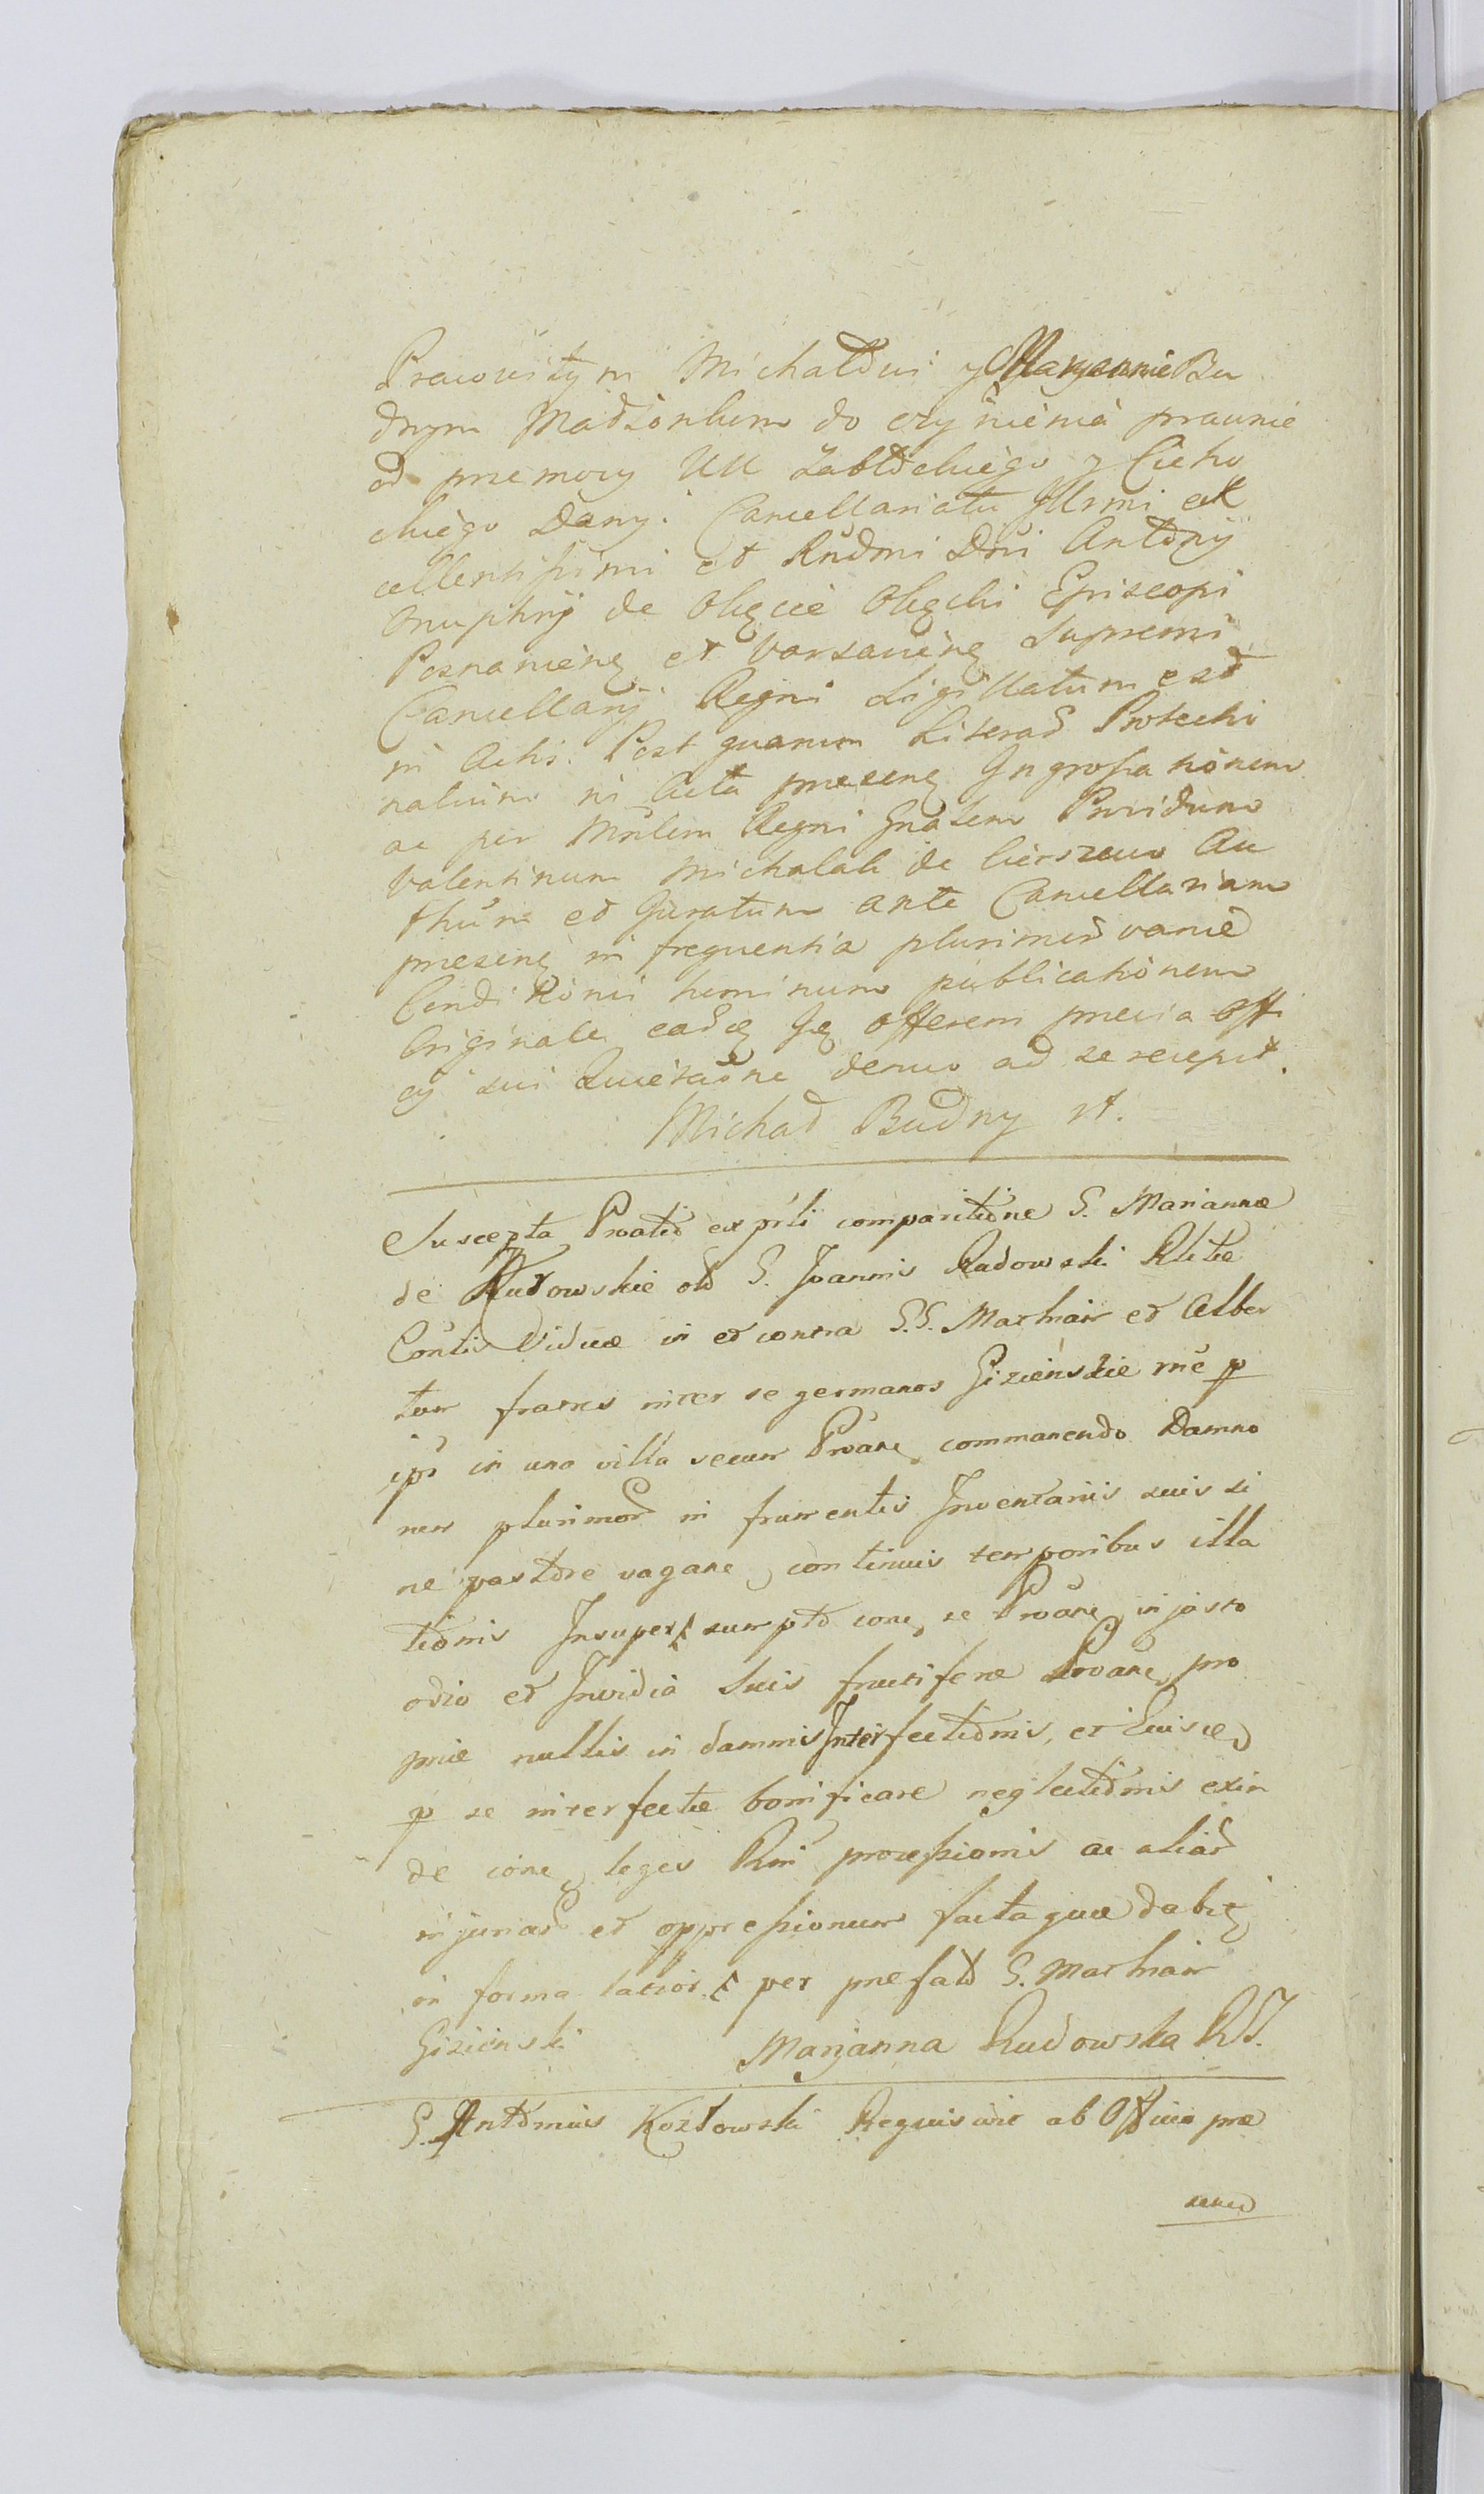 Pracowitym Michałowi y Maryannie Bu
dnym Małżonkom do czynienia prawnie
od przemocy UU Zabłockiego y Cicho
ckiego Dany. Cancellariatu Illrmi ex
cellentissimi et Rndmi Dni Antony
Onuphrij de Okęcie Okęcki Episcopi
Posnanień et Varsavień Supremi
Cancellarij Regni Sigillatum est
in Actis. Post quarum Literas Protecti
nalium in Acta praesenę Ingrossationem
ac per Mnlem Regni Gnalem Providum
Valentinum Michalak de Cierszewo Au
thum et Juratum ante Cancellariam
praesenę in frequentia plurimor varie
Conditionis hominum publicationem
Originale eadę Ię offerem previa offi
cij sui Quietaone denuo ad se recepit.
Michał Budny st.
Suscepta Proatio ex prti comparitione G. Mariannæ
de Rudowskie olt G. Joannis Rudowski Rlitæ
Contis Viduæ in et contra G.G. Mathiam et Alber
tum fratres inter se germanos Gizienskie rne p
ipś in una villa secum Proane commanendo Damno
rum plurimor in frumentis Inventariis suis si
ne pastore vagane continuis temporibus illa
tionis Insuper sumpto cone se Proane injusto
odio et Invidia Suis fructiferæ Proane pro
priæ nullis in damnis Interfectionis, et Ejusce
p se interfectæ bonificare neglectionis exin
de cone leges Rni processionis ac aliar
injuriar et oppressionum facta quæ dabit
in forma latiori per præfatu G. Mathiam
Gizienski Marjanna Rudowska RS.
G. Antonius Kozłowski Requisivit ab Officio præ
senti